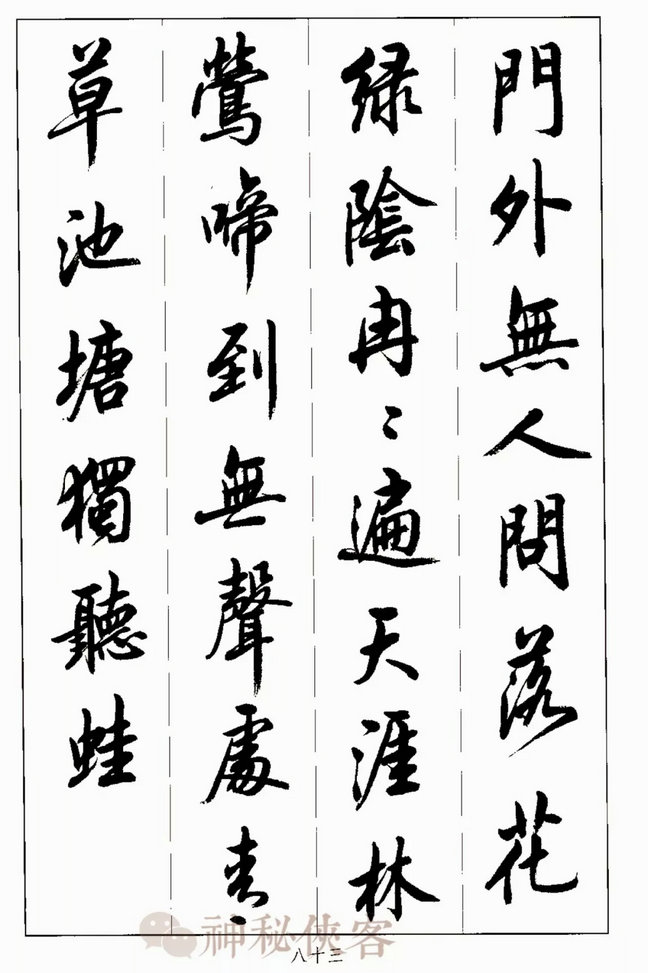 門外無人問落花
緑陰冉〻遍天涯林
鶯啼到無聲處青
草池塘獨聽蛙
神秘侠客
八十三